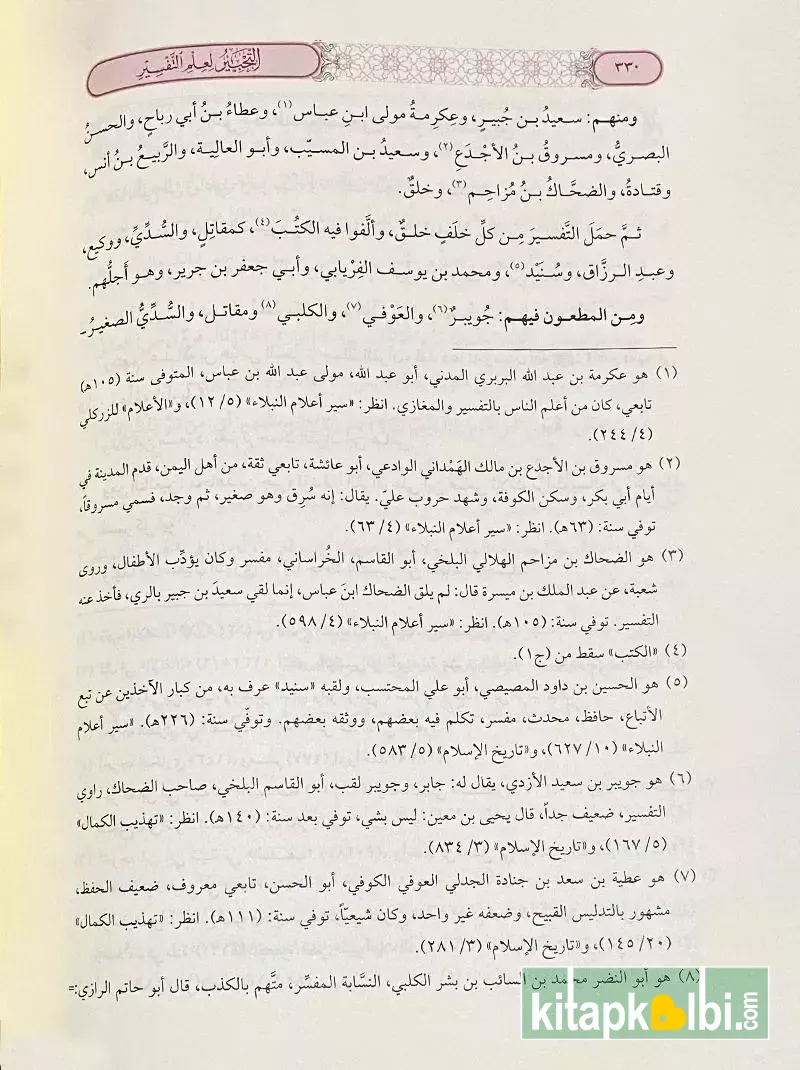 التَّحْبِيرُ لِعِلْمِ التَّفْسِيرِ
٣٣٠
ومنهم: سعيدُ بن جُبيرٍ، وعِكرِمةُ مولى ابنِ عباس(١)، وعطاءُ بنُ أبي رباحٍ، والحسنُ
البصريُّ، ومسروقُ بنُ الأجْدَعِ(٢)، وسعيدُ بن المسيّب، وأبو العالِية، والرَّبيعُ بنُ أنس،
وقتادةُ، والضحَّاكُ بنُ مُزاحِم(٣)، وخلقٌ.
ثمَّ حملَ التَّفسيرَ مِن كلِّ خلَفٍ خلقٌ، وألَّفوا فيه الكتُبَ(٤)، كمقاتِلٍ، والسُّدِّيِّ، ووكيع،
وعبدِ الرزَّاق، وسُنَيْد(٥)، ومحمد بن يوسف الفِرْيابي، وأبي جعفر بن جرير، وهو أجلُّهم.
ومِن المطعون فيهم: جُويبرٌ(٦)، والعَوْفي(٧)، والكلبي(٨) ومقاتل، والسُّدِّيُّ الصغيرُ-
(١) هو عكرمة بن عبد الله البربري المدني، أبو عبد الله، مولى عبد الله بن عباس، المتوفى سنة (١٠٥هـ)
تابعي، كان من أعلم الناس بالتفسير والمغازي. انظر: «سير أعلام النبلاء» (٥/ ١٢)، و«الأعلام» للزركلي
(٤/ ٢٤٤).
(٢) هو مسروق بن الأجدع بن مالك الهَمْداني الوادعي، أبو عائشة، تابعي ثقة، من أهل اليمن، قدم المدينة في
أيام أبي بكر، وسكن الكوفة، وشهد حروب عليّ. يقال: إنه سُرِق وهو صغير، ثم وجد، فسمي مسروقاً،
توفي سنة: (٦٣هـ). انظر: «سير أعلام النبلاء» (٤/ ٦٣).
(٣) هو الضحاك بن مزاحم الهلالي البلخي، أبو القاسم، الخُراساني، مفسر وكان يؤدِّب الأطفال، وروى
شعبة، عن عبد الملك بن ميسرة قال: لم يلق الضحاك ابنَ عباس، إنما لقي سعيدَ بن جبير بالري، فأخذ عنه
التفسير. توفي سنة: (١٠٥هـ). انظر: «سير أعلام النبلاء» (٤/ ٥٩٨).
(٤) «الكتب» سقط من (ج١).
(٥) هو الحسين بن داود المصيصي، أبو علي المحتسب، ولقبه «سنيد» عرف به، من كبار الآخذين عن تبع
الأتباع، حافظ، محدث، مفسر، تكلم فيه بعضهم، ووثقه بعضهم. وتوفّي سنة: (٢٢٦هـ). «سير أعلام
النبلاء» (١٠/ ٦٢٧)، و«تاريخ الإسلام» (٥/ ٥٨٣).
(٦) هو جويبر بن سعيد الأزدي، يقال له: جابر، وجويبر لقب، أبو القاسم البلخي، صاحب الضحاك، راوي
التفسير، ضعيف جداً، قال يحيى بن معين: ليس بشي، توفي بعد سنة: (١٤٠هـ). انظر: «تهذيب الكمال»
(٥/ ١٦٧)، و«تاريخ الإسلام» (٣/ ٨٣٤).
(٧) هو عطية بن سعد بن جنادة الجدلي العوفي الكوفي، أبو الحسن، تابعي معروف، ضعيف الحفظ،
مشهور بالتدليس القبيح، وضعفه غير واحد، وكان شيعيّاً، توفي سنة: (١١١هـ). انظر: «تهذيب الكمال»
(٢٠/ ١٤٥)، و«تاريخ الإسلام» (٣/ ٢٨١).
(٨) هو أبو النضر محمد بن السائب بن بشر الكلبي، النسَّابة المفسِّر، متَّهم بالكذب، قال أبو حاتم الرازي:=
kitapkalbi.com